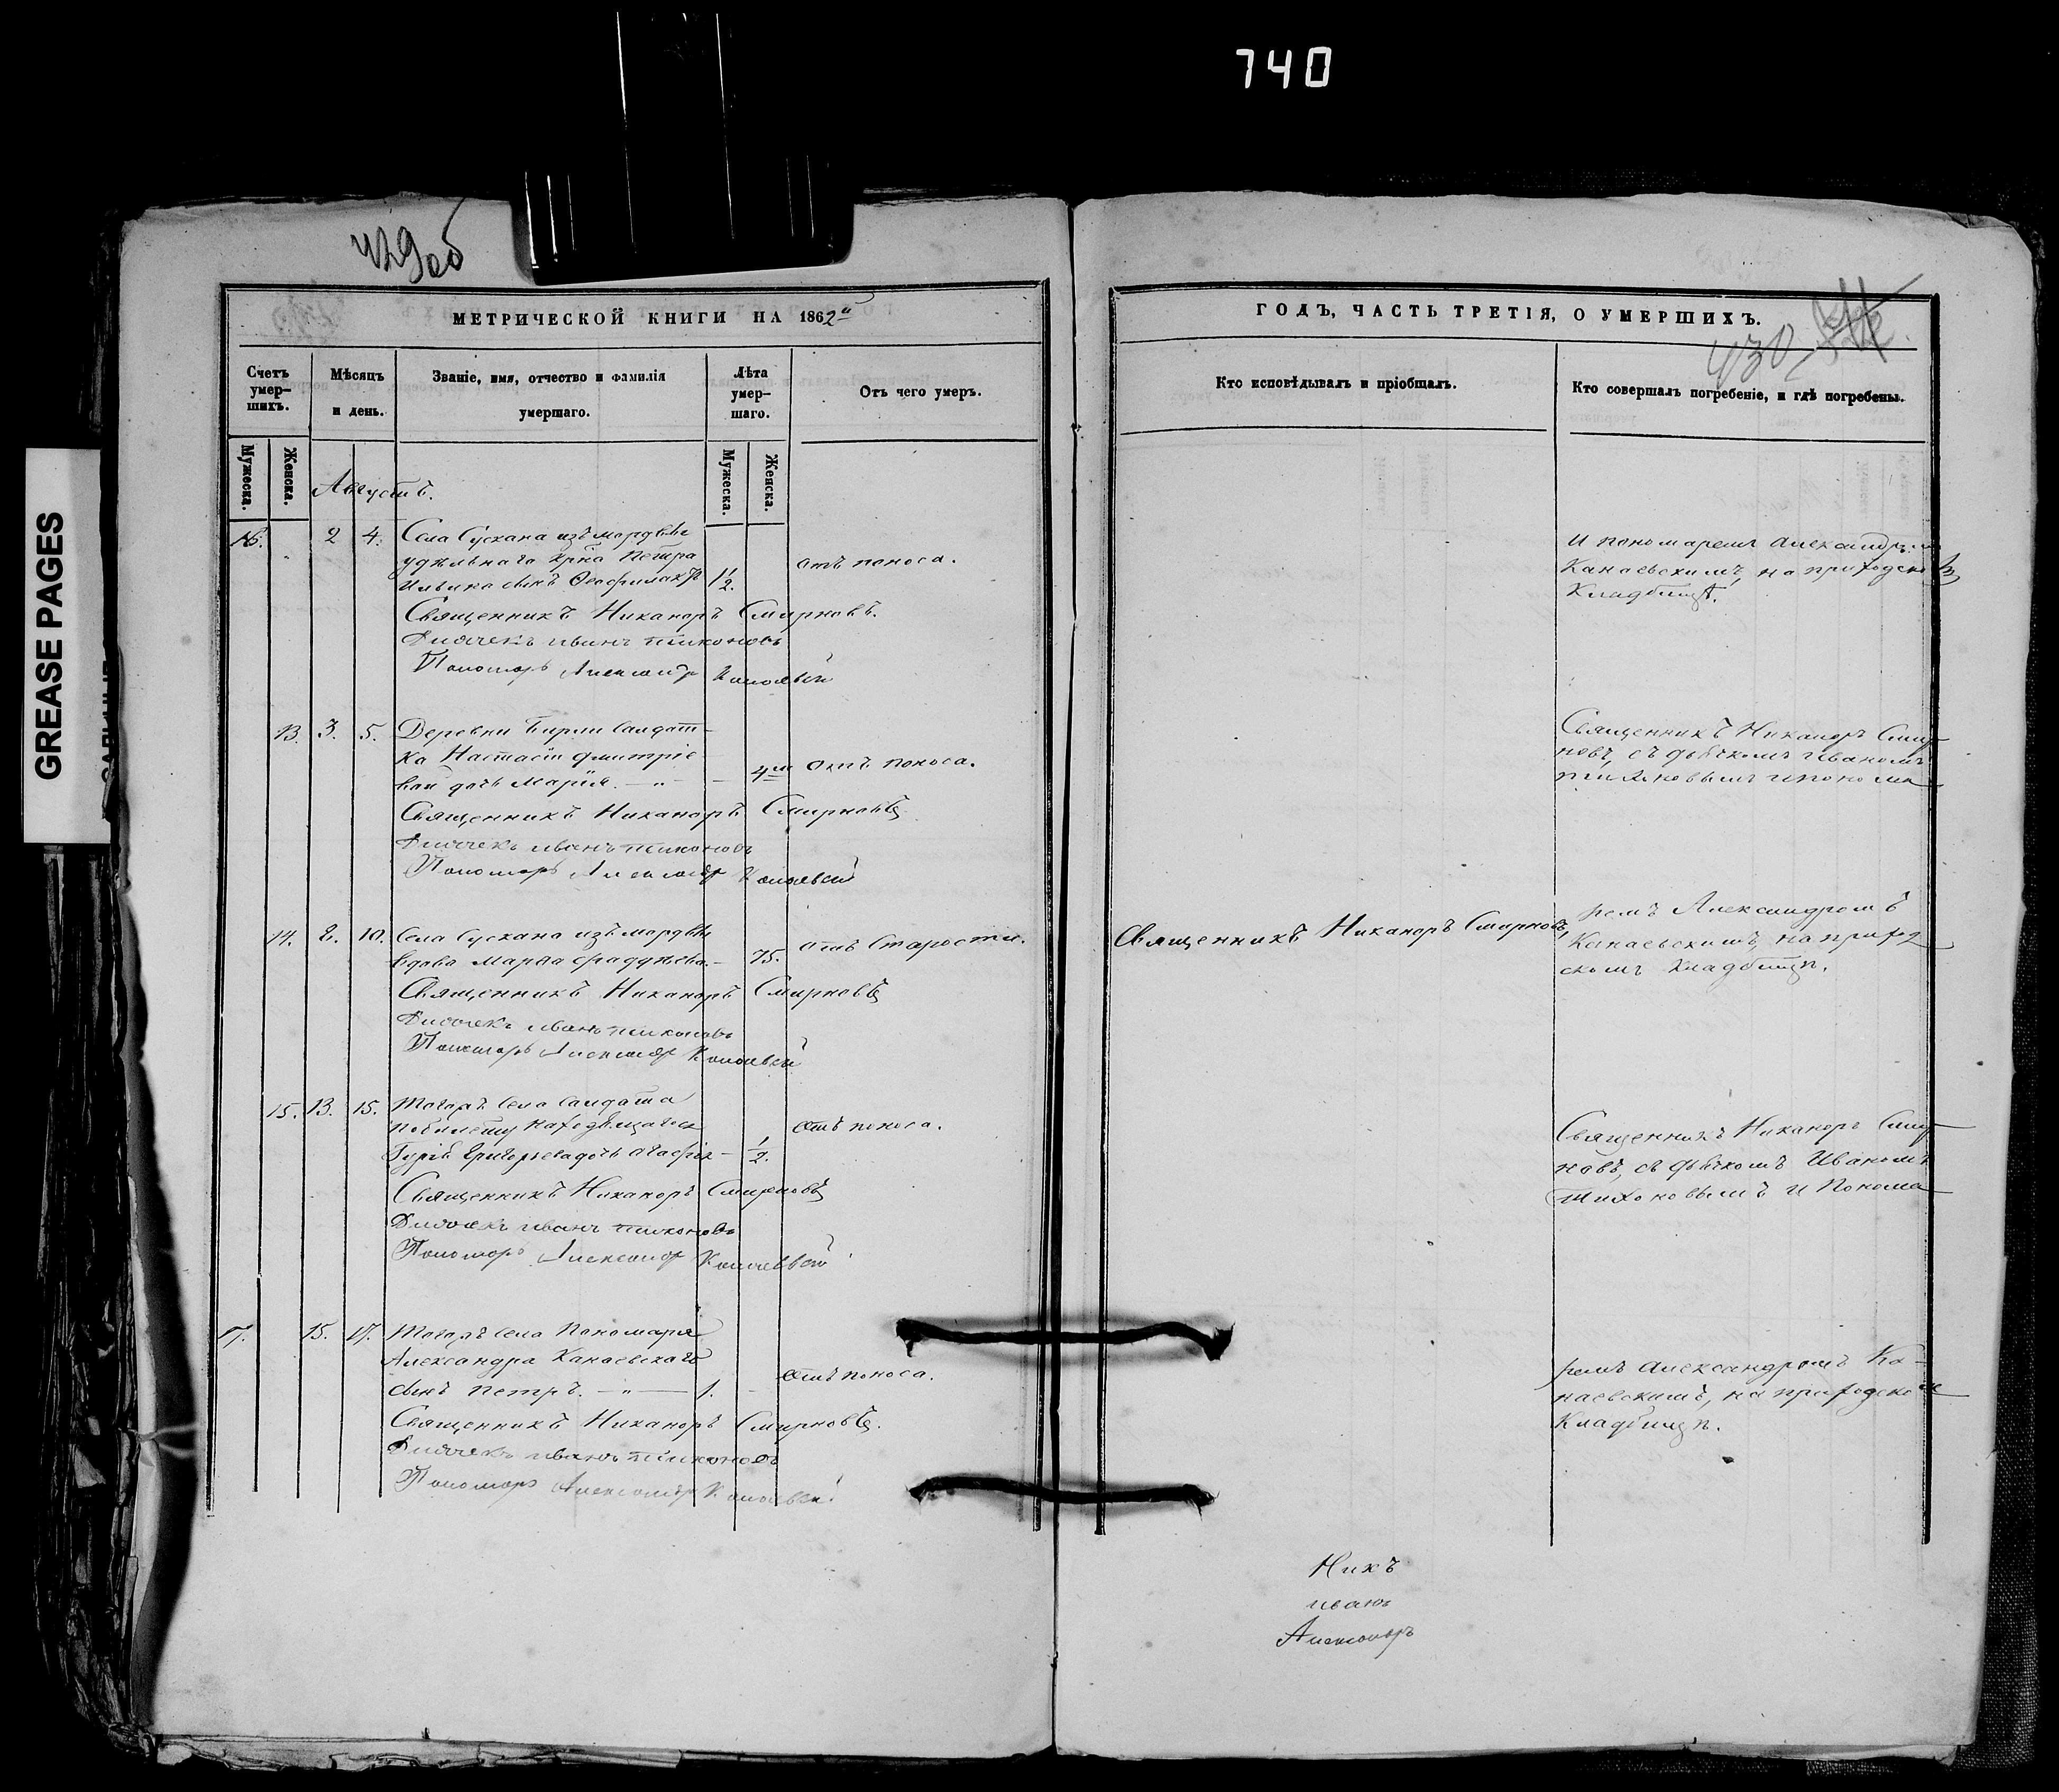 740
GREASE PAGES
429об
МЕТРИЧЕСКОЙ КНИГИ НА 1862й
Счетъ умер-
шихъ.
Мѣсяцъ
и день.
Званіе, имя, отчество и фамилія
умершаго.
Лѣта
умер-
шаго.
Отъ чего умеръ.
Мужеска.
Женска.
Мужеска.
Женска.
Августъ.
16. 2 4. Села Сускана изъ мордвы
удѣльнаго Петра отъ поноса.
Ильина сынъ Феофилактъ 1/2.
Священникъ Никаноръ Смирновъ.
Дьячекъ Иванъ Тихоновъ
Пономарь Александръ Канаевскій
13. 3. 5. Деревни Бирли Салдат-
ка Настасіи Дмитріе-
вой дочь Марія. — " — 4 отъ поноса.
Священникъ Никаноръ Смирновъ
Дьячекъ Иванъ Тихоновъ
Пономарь Александръ Канаевскій
14. 8. 10. Села Сускана изъ мордвы отъ старости.
вдова Марѳа Фаддѣева. — 75.
Священникъ Никаноръ Смирновъ
Дьячекъ Иванъ Тихоновъ
Пономарь Александръ Канаевскій
15. 13. 15. Тогожъ села Салдата
по билету находящагося отъ поноса.
Гурія Григорьева дочь Агафія — 1/2.
Священникъ Никаноръ Смирновъ
Дьячекъ Иванъ Тихоновъ
Пономарь Александръ Канаевскій
17. 15. 17. Тогожъ села Пономаря
Александра Канаевскаго отъ поноса.
сынъ Петръ. — " — 1.
Священникъ Никаноръ Смирновъ.
Дьячекъ Иванъ Тихоновъ
Пономарь Александръ Канаевскій
ГОДЪ, ЧАСТЬ ТРЕТІЯ, О УМЕРШИХЪ.
430
Кто исповѣдывалъ и пріобщалъ.
Кто совершалъ погребеніе, и гдѣ погребены.
и пономаремъ Александромъ
Канаевскимъ, на приходскомъ
Кладбищѣ.
Священникъ Никаноръ Смир-
новъ, съ дьячкомъ Иваномъ
Тихоновымъ и понома
Священникъ Никаноръ Смирновъ,
ремъ Александромъ
Канаевскимъ, на приход
скомъ кладбищѣ.
Священникъ Никаноръ Смир-
новъ, съ дьячкомъ Иваномъ
Тихоновымъ и Понома
ремъ Александромъ Ка-
наевскимъ, на приходскомъ
Кладбищѣ.
Никъ
Иванъ
Александръ